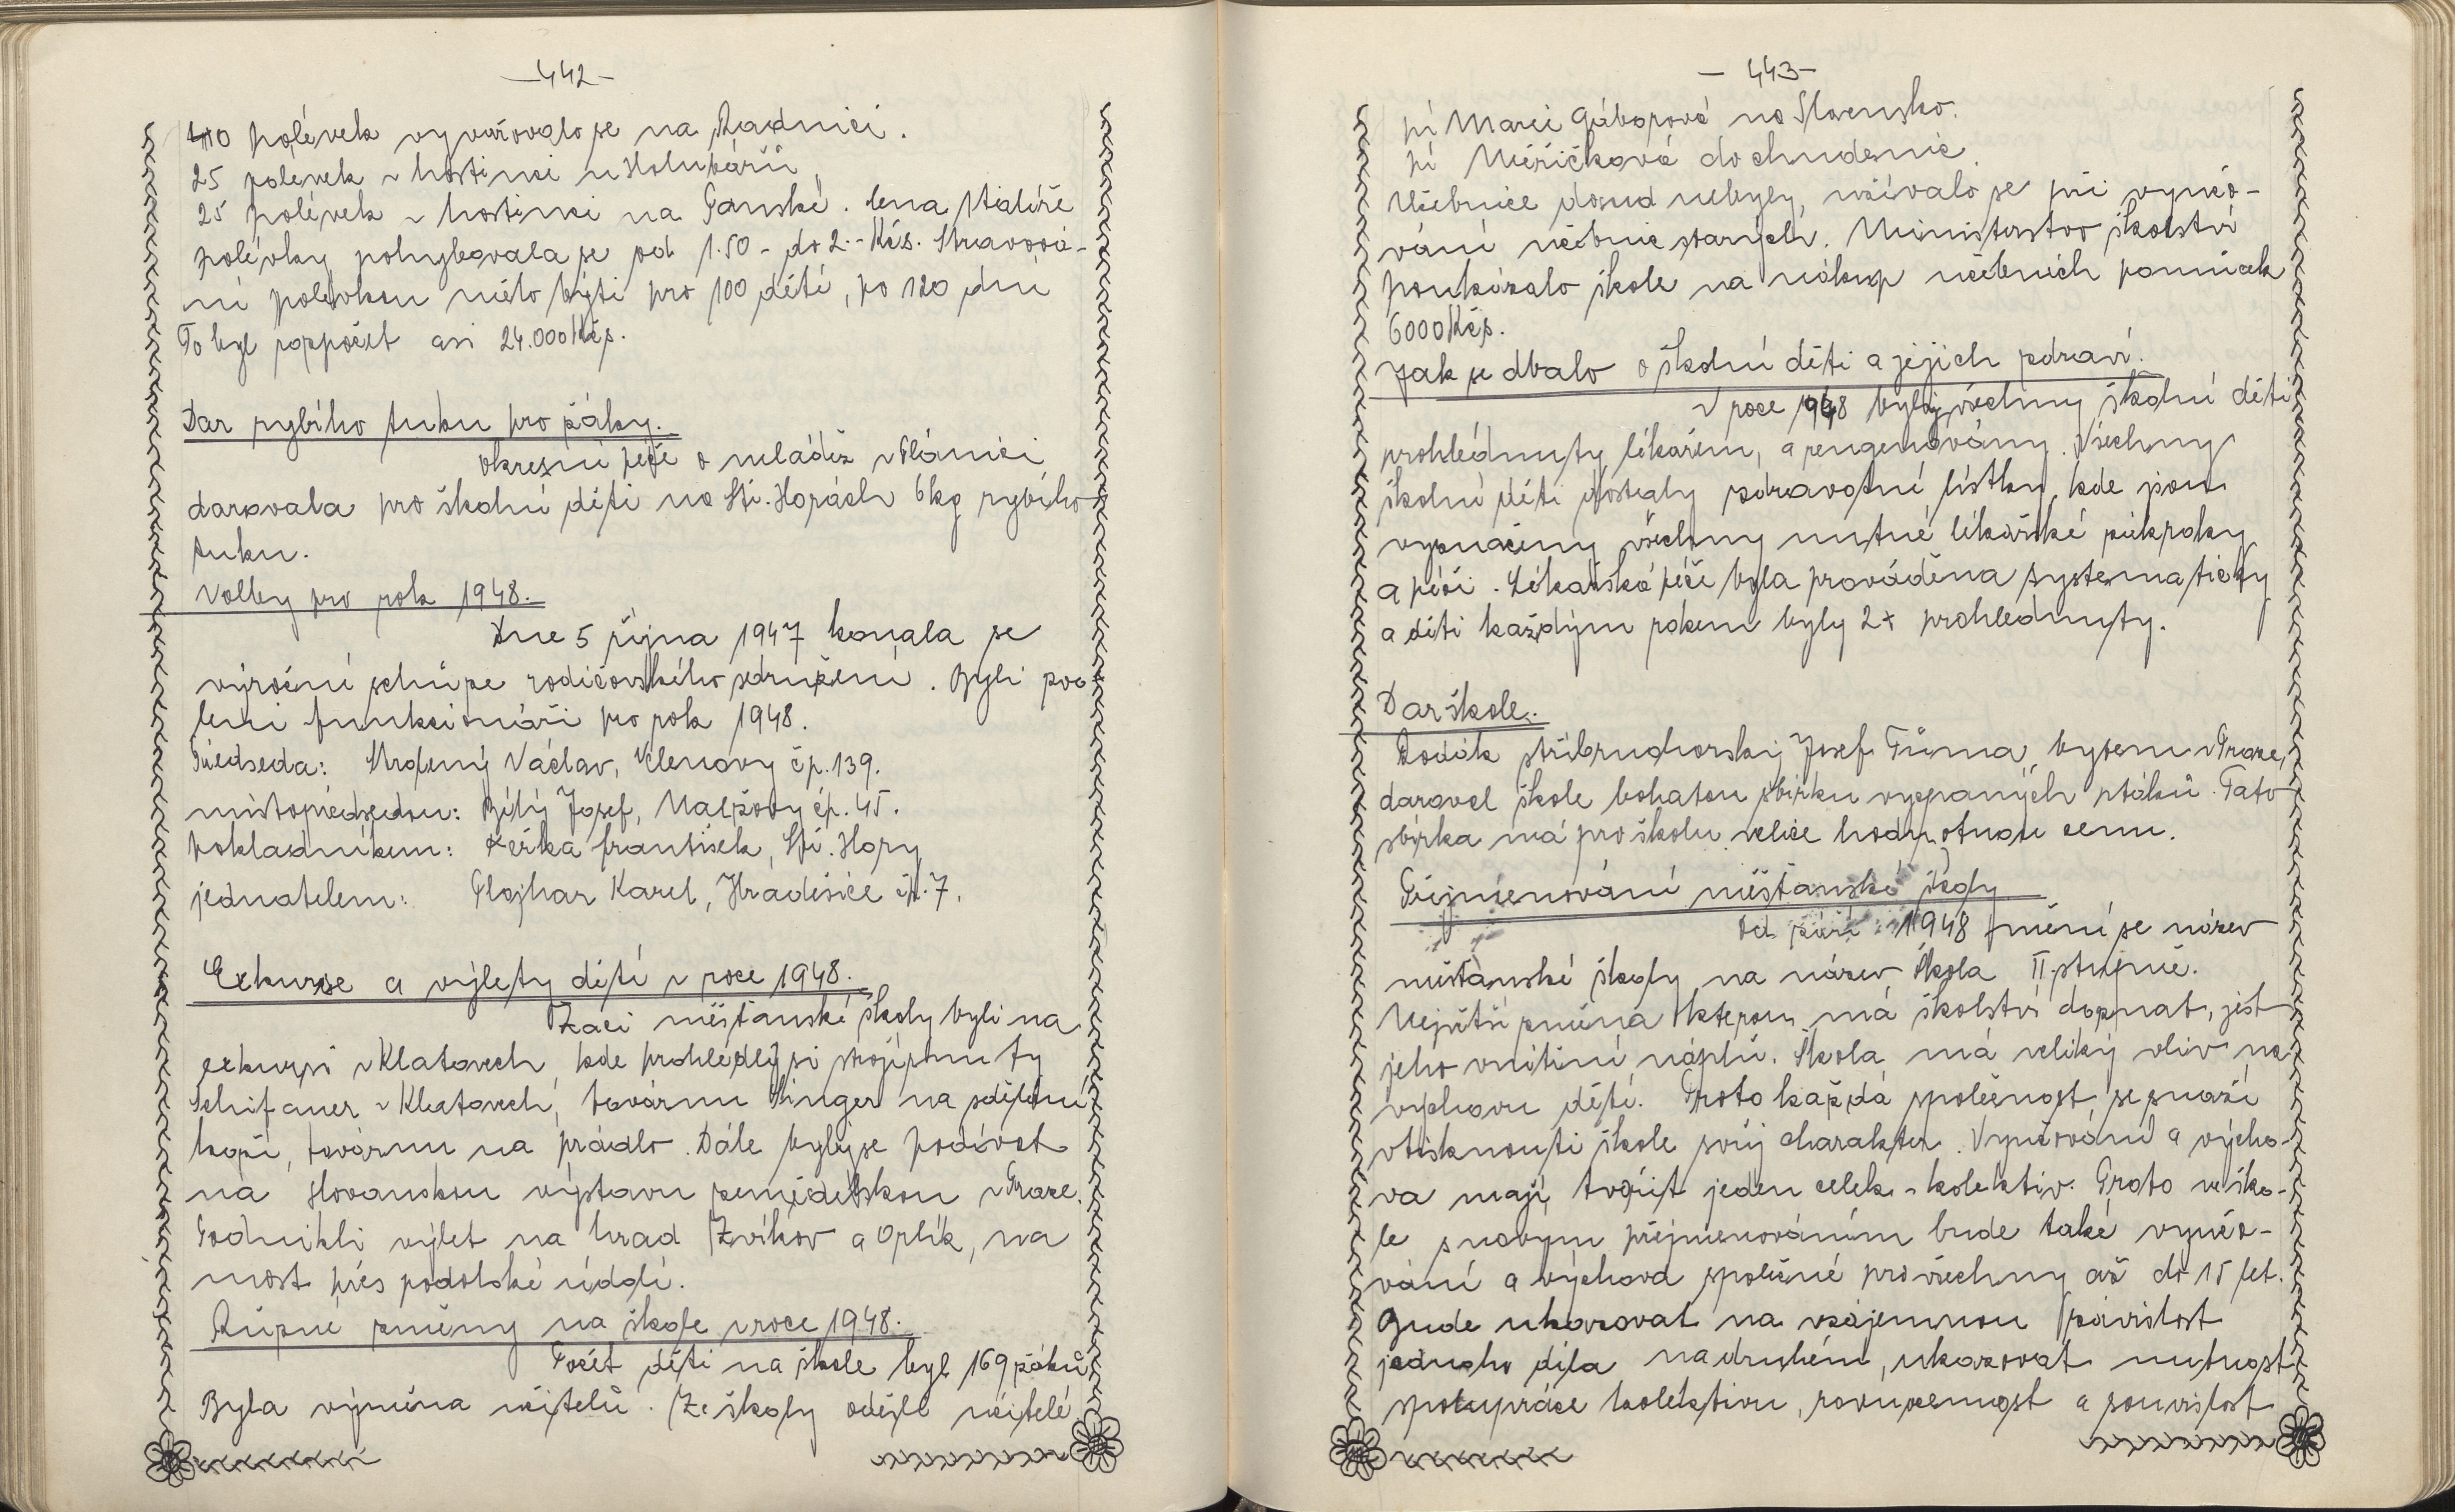 -442-
40 polévek vyvařovalo se na Radnici.
25 polevek v hostinci u Holubářů,
25 polévek v hostinci na Panské. Cena talíře
polévky pohybovala se od 1.50 - do 2.- Kčs. Stravová-
ní polévkou mělo býti pro 100 dětí, po 120 dnů
To byl rozpočet asi 24.000 Kčs.
Dar rybího tuku pro žáky.
Okresní péče o mládež v Plánici
darovala pro školní děti na Stř. Horách 6 kg rybího
tuku.
Volby pro rok 1948.
Dne 5 října 1947 konala se
výroční schůze rodičovského sdružení. Byli zvo-
leni funkcionáři pro rok 1948.
Předseda: Strolený Václav, Klenovy čp. 139.
místopředsedou: Bílý Josef, Malzovy čp. 45.
pokladníkem: Žerka František, Stř. Hory
jednatelem: Plojhar Karel, Hradešice čp. 7.
Exkurse a výlety dětí v roce 1948.
Žáci měšťanské školy byli na
exkursi v Klatovech, kde prohledly si strojírnu fy
Schifauer v Klatovech, továrnu Singer na zdělání
koží, továrnu na prádlo. Dále byly se podívat
na Slovanskou výstavu zemědělskou v Praze.
Podnikli výlet na hrad Zvíkov a Orlík, na
most přes podolské údolí.
Různé změny na škole v roce 1948.
Počet dětí na škole byl 169 žáků
Byla výměna učitelů. Ze školy odešli učitelé
- 443-
pí Marie Gáborová na Slovensko.
pí Měřičková do Chudenic.
Učebnice dosud nebyly, užívalo se při vyučo-
vání učebnic starých. Ministerstvo školství
poukázalo škole na nákup učebních pomůcek
6000 Kčs.
Jak se dbalo o školní děti a jejich zdraví.
V roce 1948 byly všechny školní děti
prohlédnuty lékařem, a rengenovány. Všechny
školní děti dostaly zdravotní lístky, kde jsou
vyznačeny všechny nutné lékařské zákroky
a péči. Lékařská péče byla prováděna systematicky
a děti každým rokem byly 2x prohlednuty.
Dar škole.
Rodák stříbrnohorský Josef Tůma, bytem v Praze,
daroval škole bohatou sbírku vycpaných ptáků. Tato
sbírka má pro školu velice hodnotnou cenu.
Přejmenování měšťanské školy
Od září 1948 mění se název
měšťanské školy na název Škola II stupně.
Největší změna kterou má školství doznat, jest
jeho vnitřní náplň. Škola má veliký vliv na
výchovu dětí. Proto každá společnost se snaží
vtisknouti škole svůj charakter. Vyučování a výcho-
va mají tvořit jeden celek - kolektiv. Proto ve ško-
le s novým přejmenováním bude také vyučo-
vání a výchova společné pro všechny až do 15 let.
Bude ukazovat na vzájemnou závislost
jednoho díla na druhém, ukazovat nutnost
spolupráce kolektivu, rovnocennost a souvislost